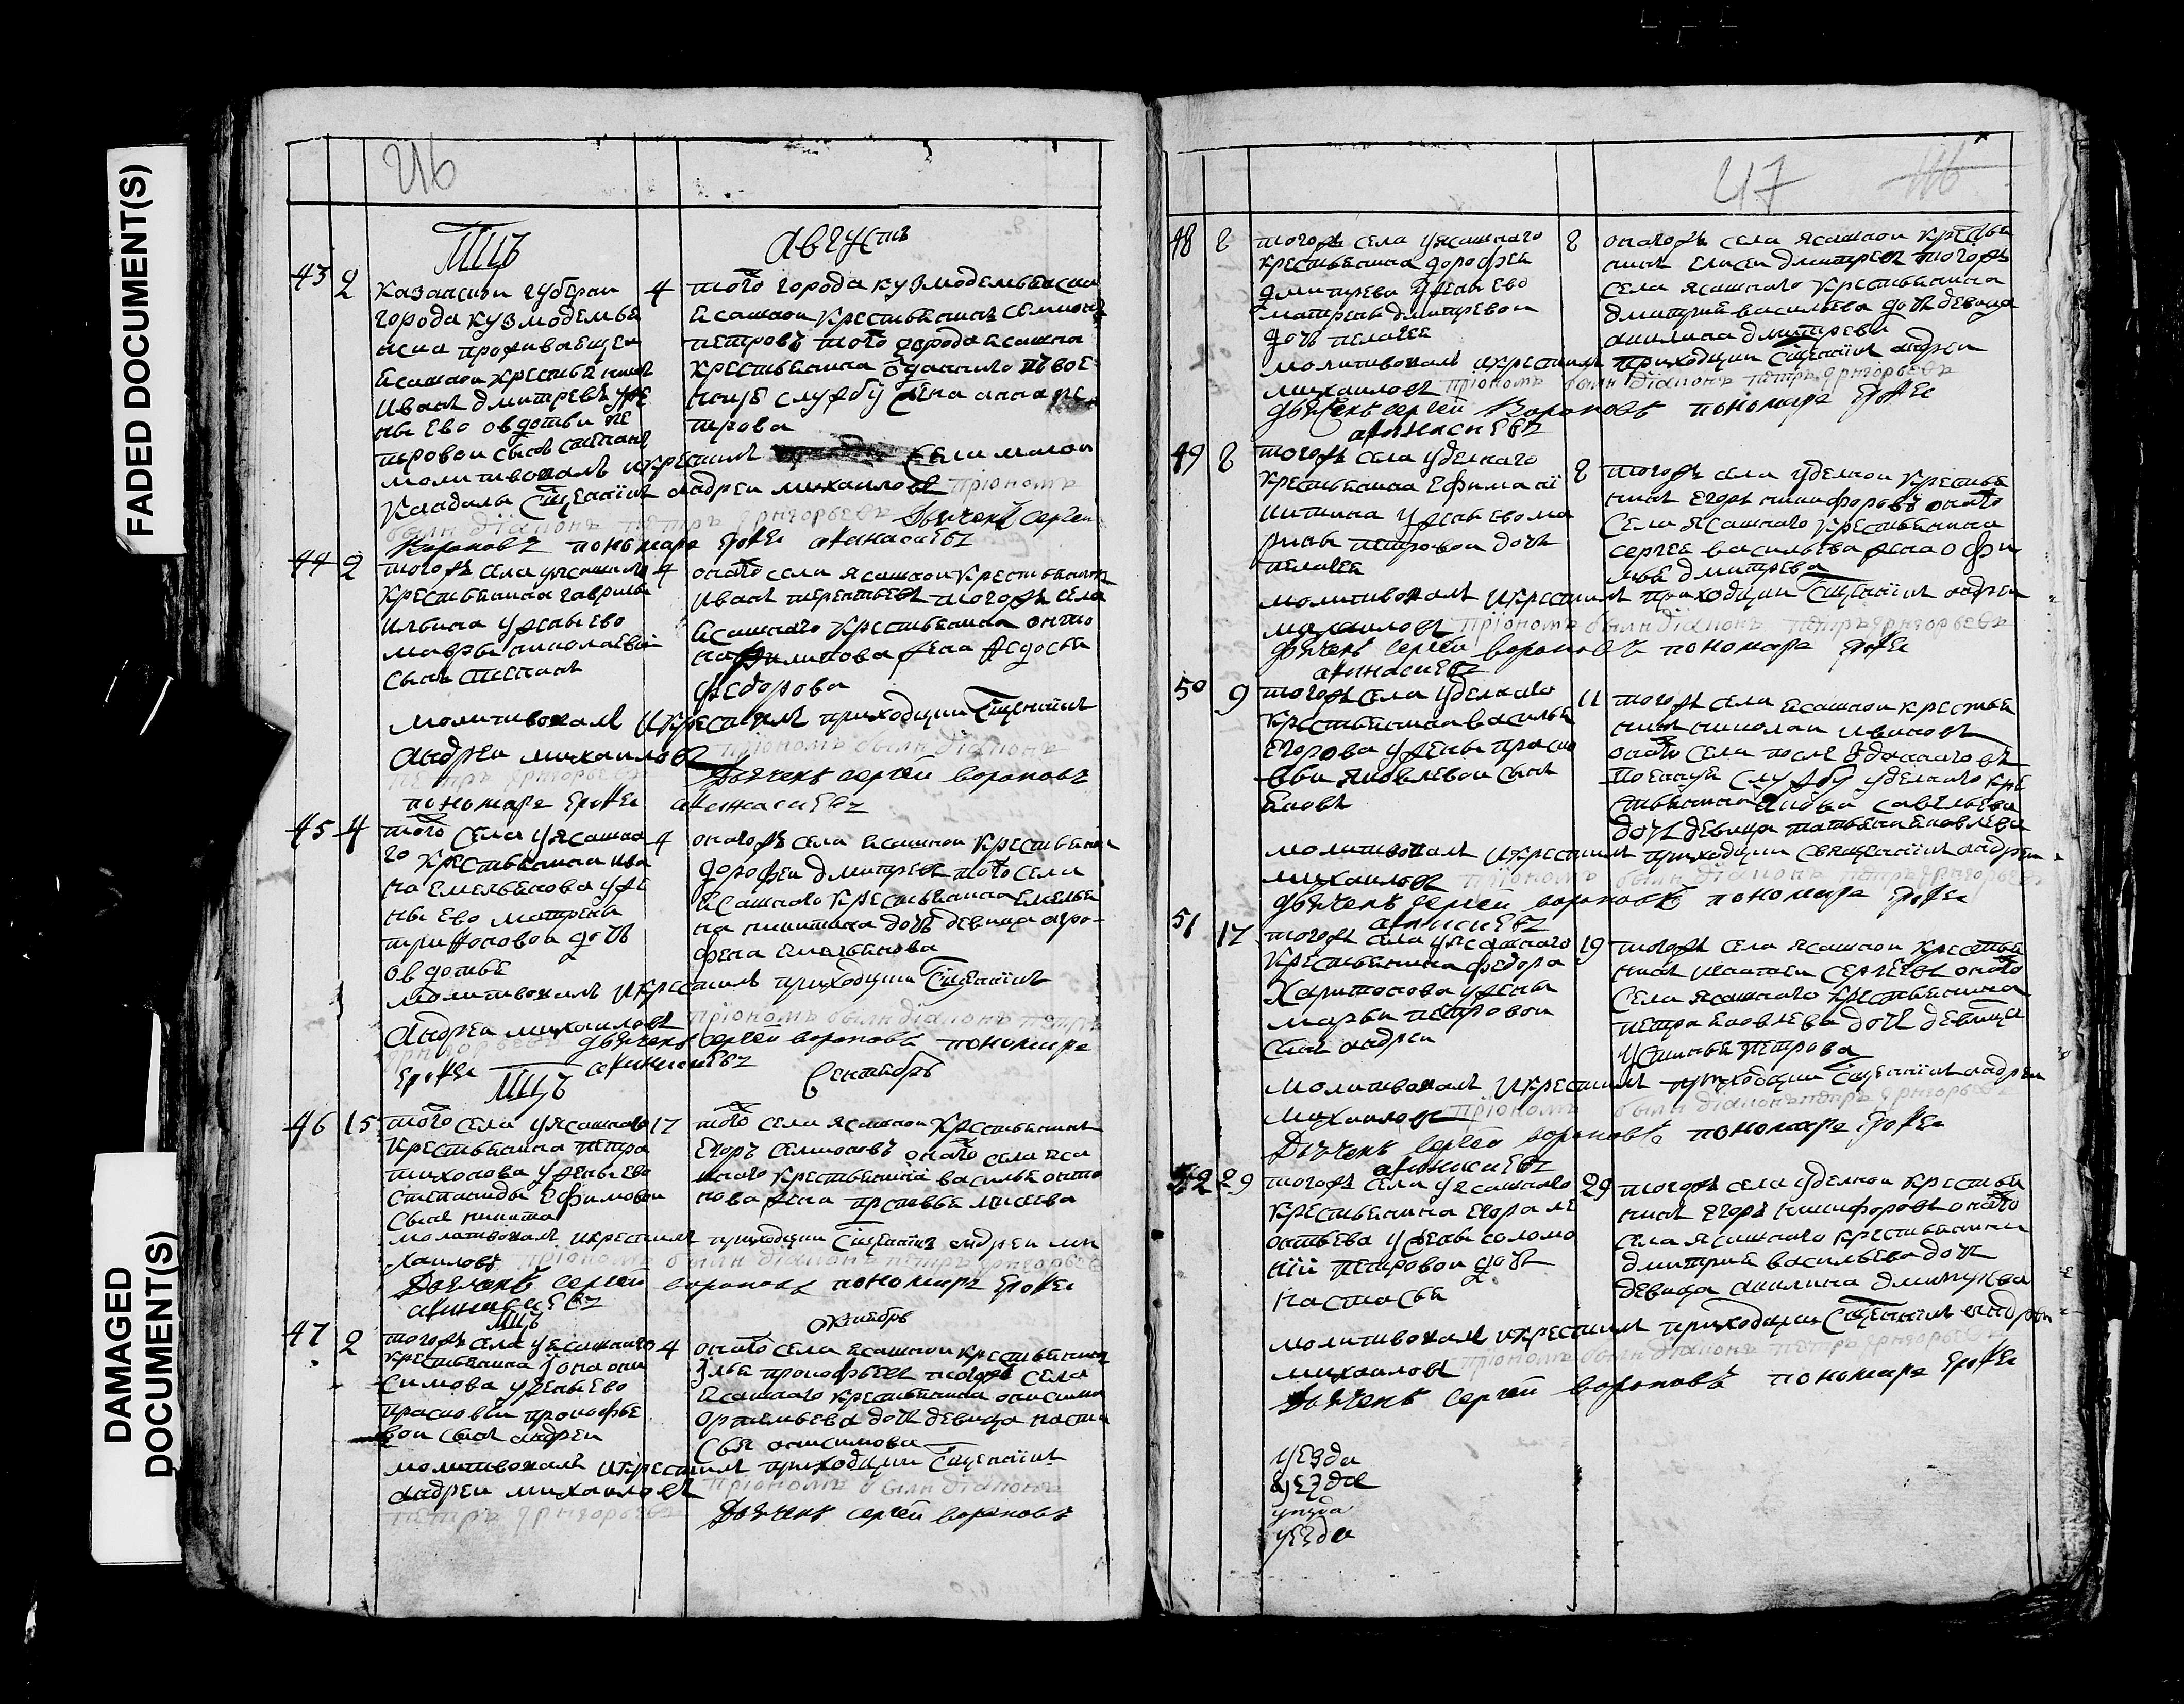 FADED DOCUMENT(S)
DAMAGED
DOCUMENT(S)
216
Мцъ Августъ
43 2 казанской губерни
города кузмодемья
нска проживаещей
ясашной крестьянинъ
Иванъ дмитревъ у же
ны ево овдотьи пе
тровой сынъ степанъ
4 того города кузмодемьянска
ясашной крестьянинъ семионъ
петровъ того города ясашна
крестьянина отданного въ вое
ную службу жена анна пе
трова
молитвовалъ и крестилъ села малой
Свщенникъ андреи михаиловъ приономъ
былъ диаконъ петръ григорьевъ Дьячекъ сергеи
Вороновъ пономаръ ерофеи афанасиевъ
44 2 тогожъ села у ясашнаго
крестьянина гаврилы
ильина у жены ево
мавры николаевой
сынъ степанъ
4 оного села ясашной крестьянинъ
иванъ терентьевъ тогожъ села
ясашнаго крестьянина онто
на филипова жена федосья
федорова
молитвовалъ и крестилъ приходции Свщенникъ
андреи михаиловъ приономъ былъ диаконъ
петръ григорьевъ Дьячекъ сергеи вороновъ
пономаръ ерофеи афанасиевъ
45 4 того села у ясашна
го крестьянина ива
на емельянова у же
ны ево матрены
трифоновой дочь
овдотья
4 оногожъ села ясашной крестьянинъ
дорофеи дмитревъ того села
ясашнаго крестьянина емелья
на никитина дочь девица агро
фена емельянова
молитвовалъ и крестилъ приходции Свщенникъ
андреи михаиловъ приономъ былъ диаконъ петръ
григорьевъ дьячекъ сергеи вороновъ пономаръ
ерофеи афанасиевъ
Мцъ Сентябръ
46 15 того села у ясашнаго
крестьянина петра
тихонова у жены ево
степаниды ефимовой
сынъ никита
17 того села ясашной крестьянинъ
егоръ семионовъ оного села яса
шнаго крестьянина василья онто
нова жена
молитвовалъ и крестилъ приходции Свщенникъ андреи ми
хаиловъ приономъ былъ диаконъ петръ григорьевъ
Дьячекъ сергеи вороновъ пономаръ ерофеи
афанасиевъ
Мцъ октябръ
47 2 тогожъ села у ясашнаго
крестьянина иона они
симова у жены ево
прасковьи прокофье
вой сынъ андреи
4 оного села ясашной крестьянинъ
илья прокофьевъ тогожъ села
ясашнаго крестьянина онисима
артемьева дочь девица наста
сья онисимова
молитвовалъ и крестилъ приходции Свщенникъ
андреи михаиловъ приономъ былъ диаконъ
петръ григорьевъ Дьячекъ сергеи вороновъ
217
48 8 тогожъ села у ясашнаго
крестьянина дорофея
дмитрева у жены ево
матрены дмитревой
дочь пелагея
8 оногожъ села ясашной крестья
нинъ елисеи дмитревъ тогожъ
села ясашнаго крестьянина
дмитрия васильева дочь девица
акилина дмитрева
молитвовалъ и крестилъ приходции Свщенникъ андреи
михаиловъ приономъ былъ диаконъ петръ григорьевъ
дьячекъ сергеи Вороновъ пономаръ ерофеи
афанасиевъ
49 8 тогожъ села уделнаго
крестьянина ефима
никитина у жены ево ма
рины петровой дочь
пелагея
8 тогожъ села уделной крестья
нинъ егоръ никифоровъ оного
села ясашнаго крестьянина
сергея васильева жена офи
мья дмитрева
молитвовалъ и крестилъ приходции Свщенникъ андреи
михаиловъ приономъ былъ диаконъ петръ григорьевъ
дьячекъ сергеи вороновъ пономаръ ерофеи
афанасиевъ
50 9 тогожъ села уделнаго
крестьянина василья
егорова у жены праско
вьи яковлевой сынъ
яковъ
11 тогожъ села ясашной крестья
нинъ николаи ивановъ
оного села после отданнаго въ
военную службу уделнаго кре
стьянина
дочь девица татьяна яковлева
молитвовалъ и крестилъ приходции Священникъ андреи
михаиловъ приономъ былъ диаконъ петръ григорьевъ
дьячекъ сергеи вороновъ пономаръ ерофеи
афанасиевъ
51 17 тогожъ села у ясашнаго
крестьянина федора
харитонова у жены
марьи петровой
сынъ андреи
19 тогожъ села ясашной крестья
нинъ сергеевъ оного
села ясашнаго крестьянина
петра яковлева дочь девица
устинья петрова
молитвовалъ и крестилъ приходции Свщенникъ андреи
михаиловъ приономъ былъ диаконъ петръ григорьевъ
Дьячекъ сергеи вороновъ пономаръ ерофеи
афанасиевъ
52 29 тогожъ села у ясашнаго
крестьянина егора ле
онтьева у жены соломо
нии петровой дочь
настасья
29 тогожъ села уделной крестья
нинъ егоръ никифоровъ оного
села ясашнаго крестьянина
дмитрия васильева дочь
девица акилина дмитрева
молитвовалъ и крестилъ приходции Свщенникъ андреи
михаиловъ приономъ былъ диаконъ петръ григорьевъ
Дьячекъ сергеи вороновъ пономаръ ерофеи
уезда
уезда
уезда
уезда